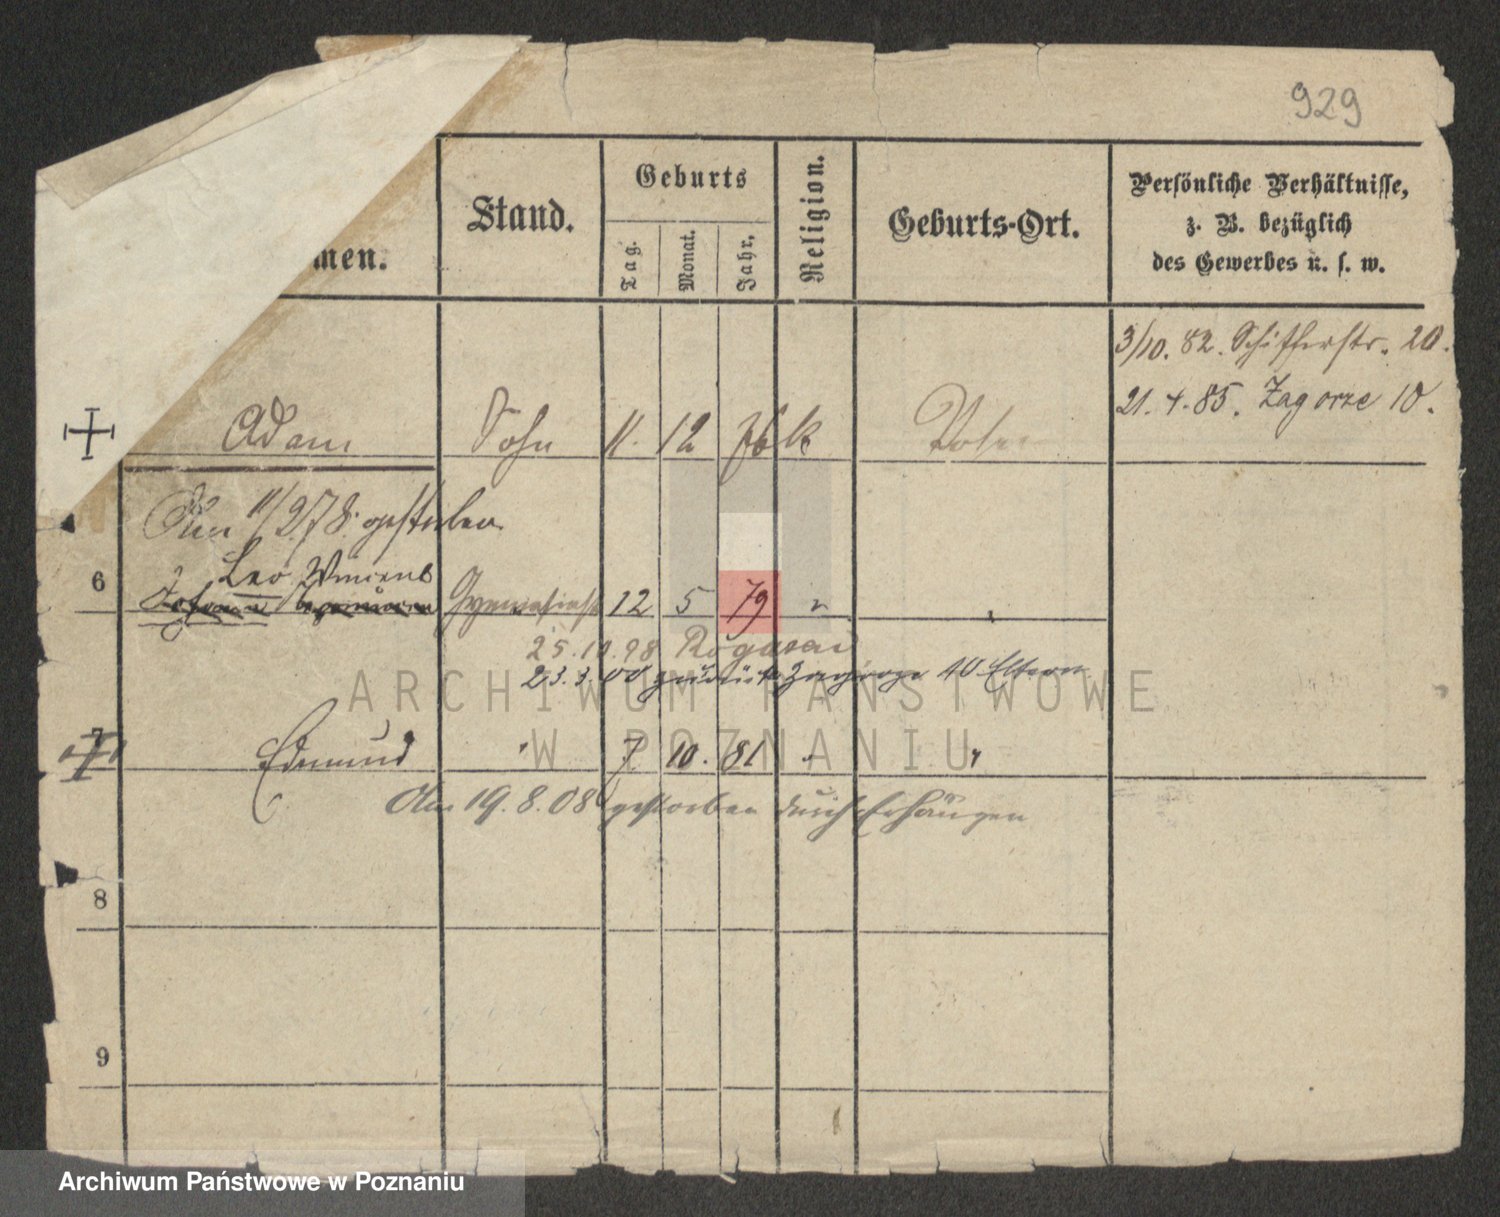 929
men.
Stand.
Geburts
Tag.
Monat.
Jahr.
Religion.
Geburts-Ort.
Persönliche Verhältnisse,
z. B. bezüglich
des Gewerbes u. s. w.
3/10. 82. Schifferstr. 20.
21. 4. 85. Zagorze 10.
Adam Sohn 11. 12 76 k Posen
Am 11/2 78. gestorben
Leo Vincent
6 Johann Gymnasiast 12 5 79 "
25.10.98 Rogasen
23.3.00 zurück Zagorze 10 Eltern
7 Edmund " 7. 10. 81 " "
Am 19.8.08 gestorben durch Erhängen
8
9
ARCHIWUM PAŃSTWOWE
W POZNANIU
Archiwum Państwowe w Poznaniu